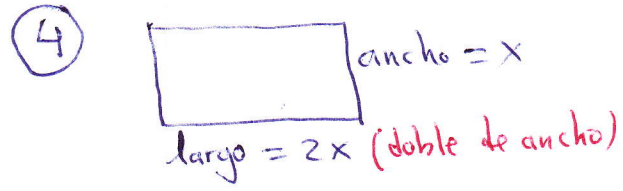 4
ancho = x
largo = 2x (doble de ancho)